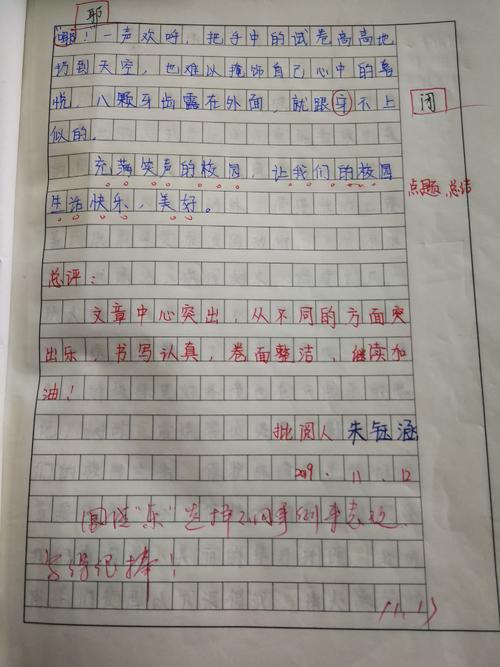 耶
"耶！"一声欢呼，把手中的试卷高高地
扔到天空，也难以掩饰自己心中的喜
悦，八颗牙齿露在外面，就跟牙不上
闭
似的。
充满笑声的校园，让我们的校园
点题，总结
生活快乐，美好。
总评：
文章中心突出，从不同的方面突
出乐，书写认真，卷面整洁，继续加
油！
批阅人 朱钰涵
2019.11.12
围绕"乐"选择不同事例来表达
写得很棒！
11.13